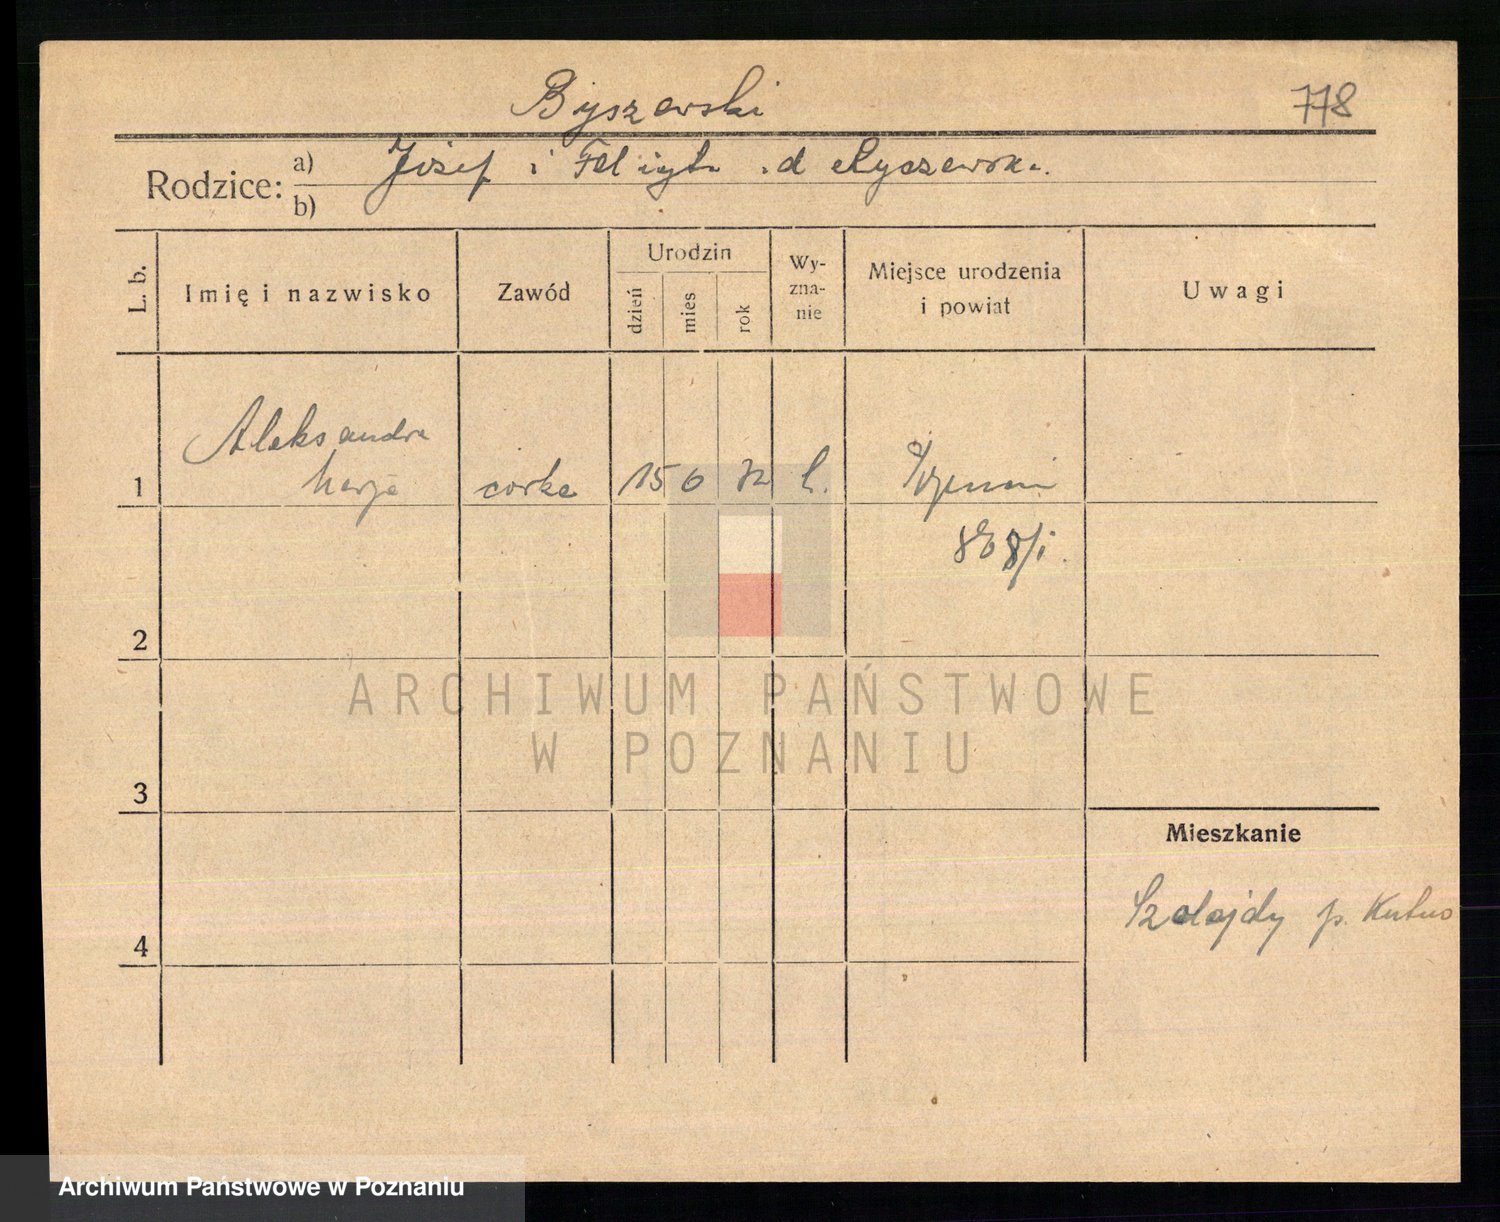 Byszewski
778
Rodzice:
a) Józef i Felicyta .d
b)
L. b.
Imię i nazwisko
Zawód
Urodzin
dzień
mies
rok
Wy-
zna-
nie
Miejsce urodzenia
i powiat
Uwagi
Aleksandra
1 Marja córka 15 6
2
3
4
Mieszkanie
p. Kutno
ARCHIWUM PAŃSTWOWE
W POZNANIU
Archiwum Państwowe w Poznaniu